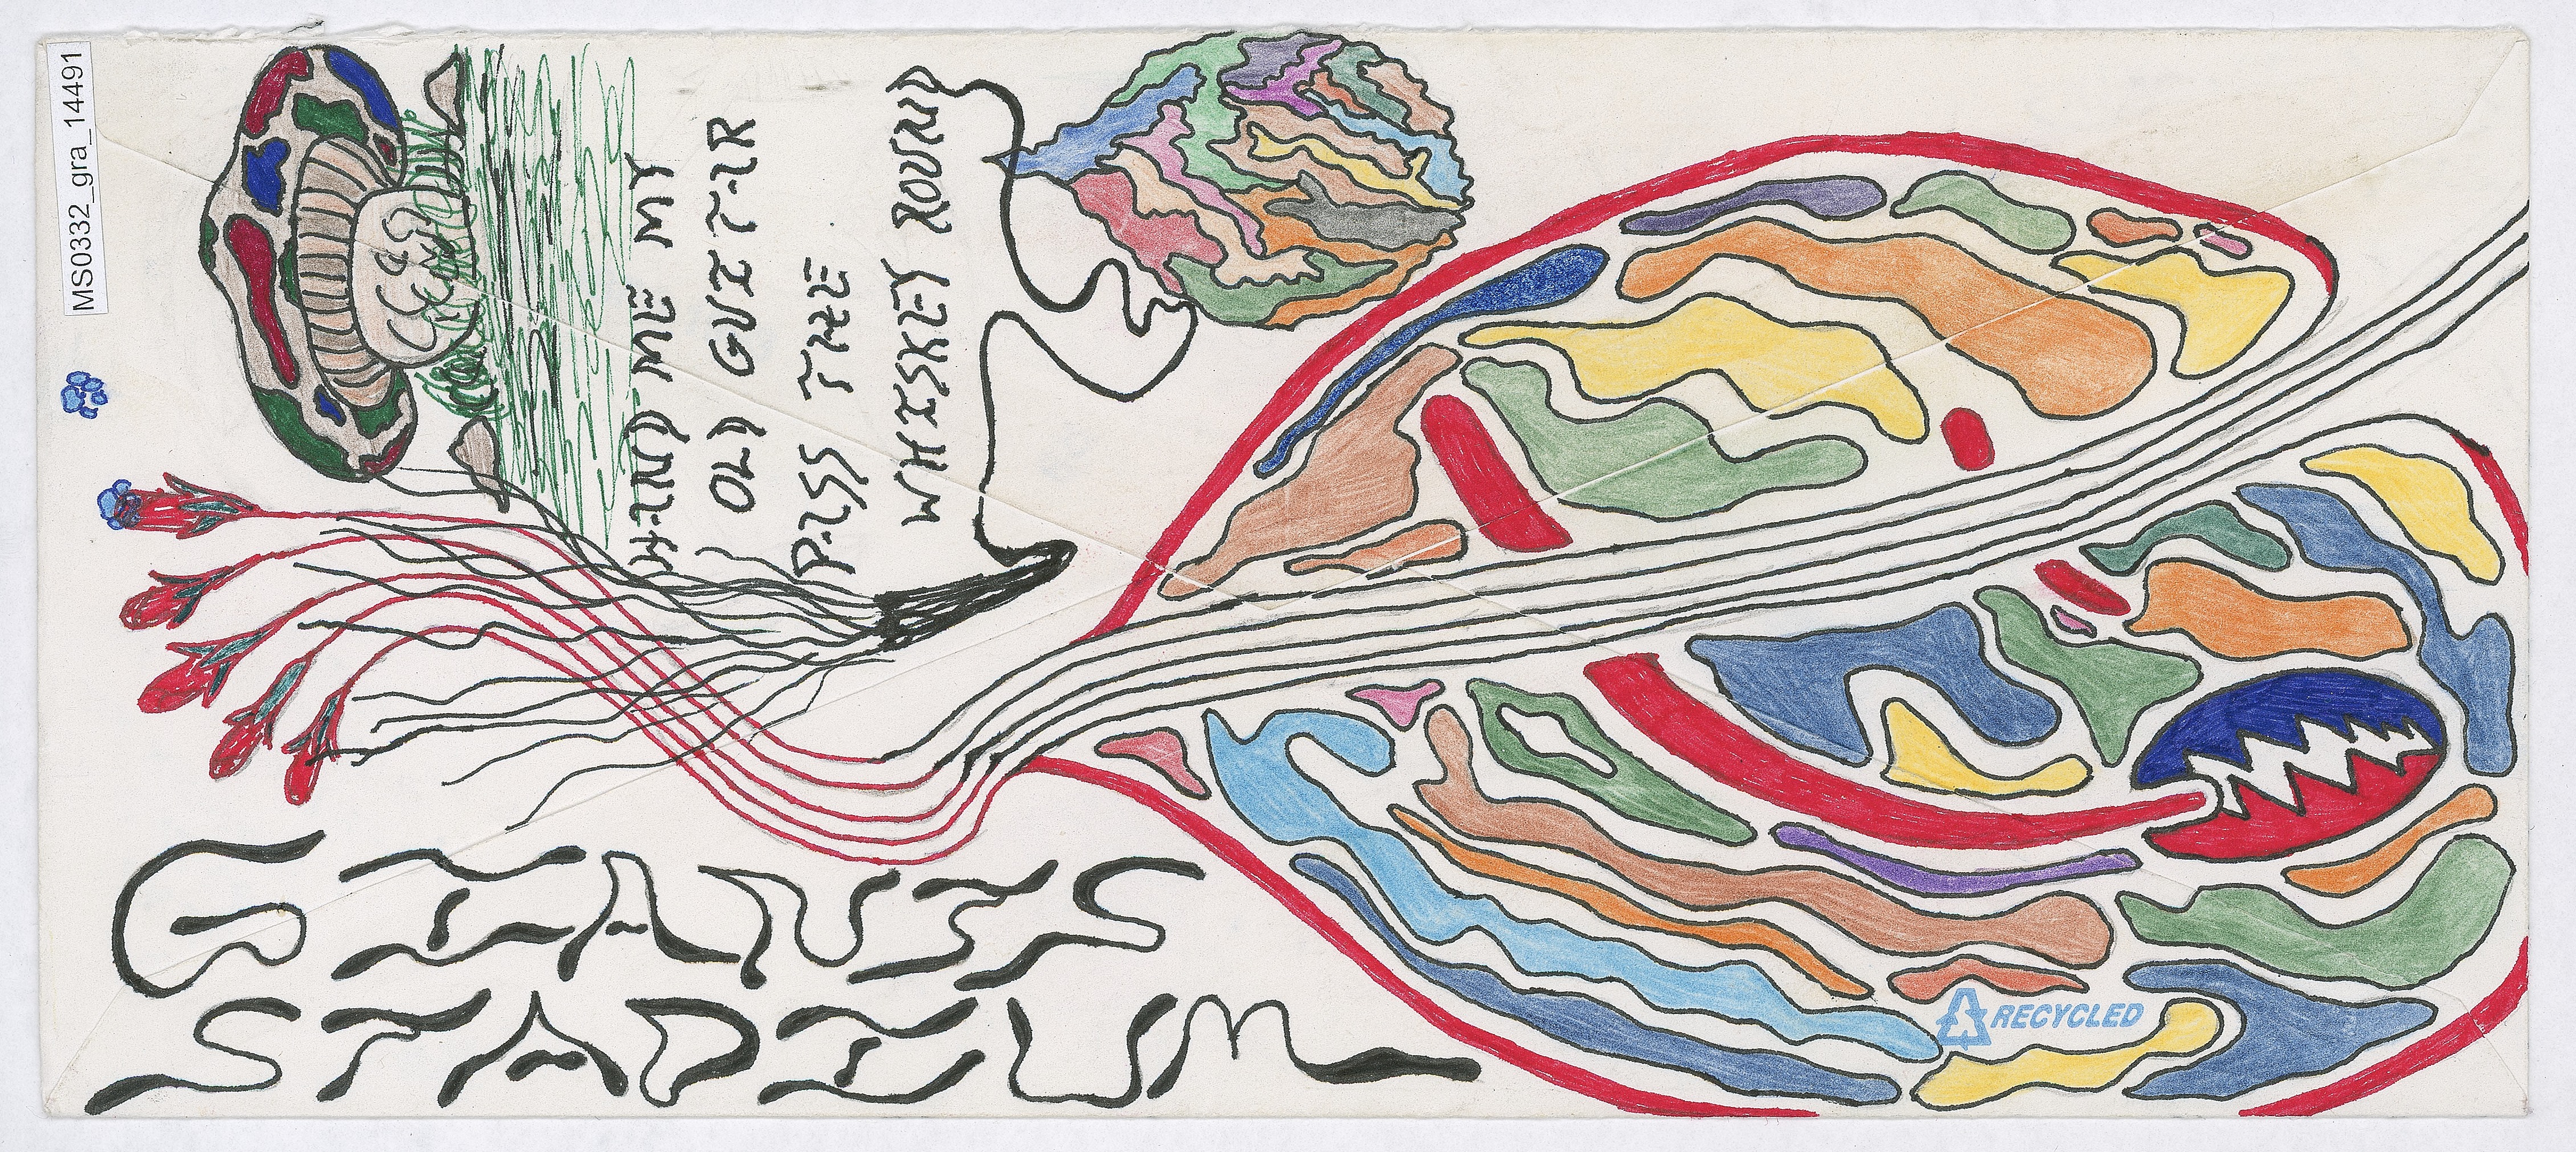 MS0332_gra_14491
HAND ME MY
OLD GUITAR
PASS THE
WHISKEY ROUND
GIANTS
STADIUM
RECYCLED